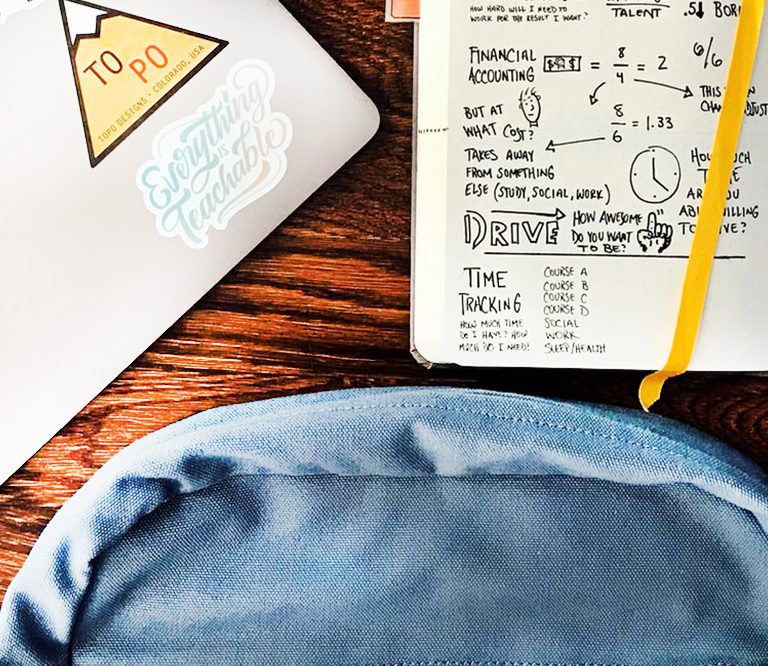 TO
PO
TOPO DESIGNS - COLORADO, USA
Everything
is
Teachable
HOW HARD WILL I NEED TO
WORK FOR THE RESULT I WANT?
TALENT
.5↓ BORI
FINANCIAL
ACCOUNTING
$ $ = 8/4 = 2
6/6
THIS
BUT AT
WHAT COST?
8/6 = 1.33
TAKES AWAY
FROM SOMETHING
ELSE (STUDY, SOCIAL, WORK)
ARE YOU
DRIVE
HOW AWESOME
DO YOU WANT
TO BE?
TIME
TRACKING
HOW MUCH TIME
DO I HAVE? HOW
MUCH DO I NEED?
COURSE A
COURSE B
COURSE C
COURSE D
SOCIAL
WORK
SLEEP/HEALTH